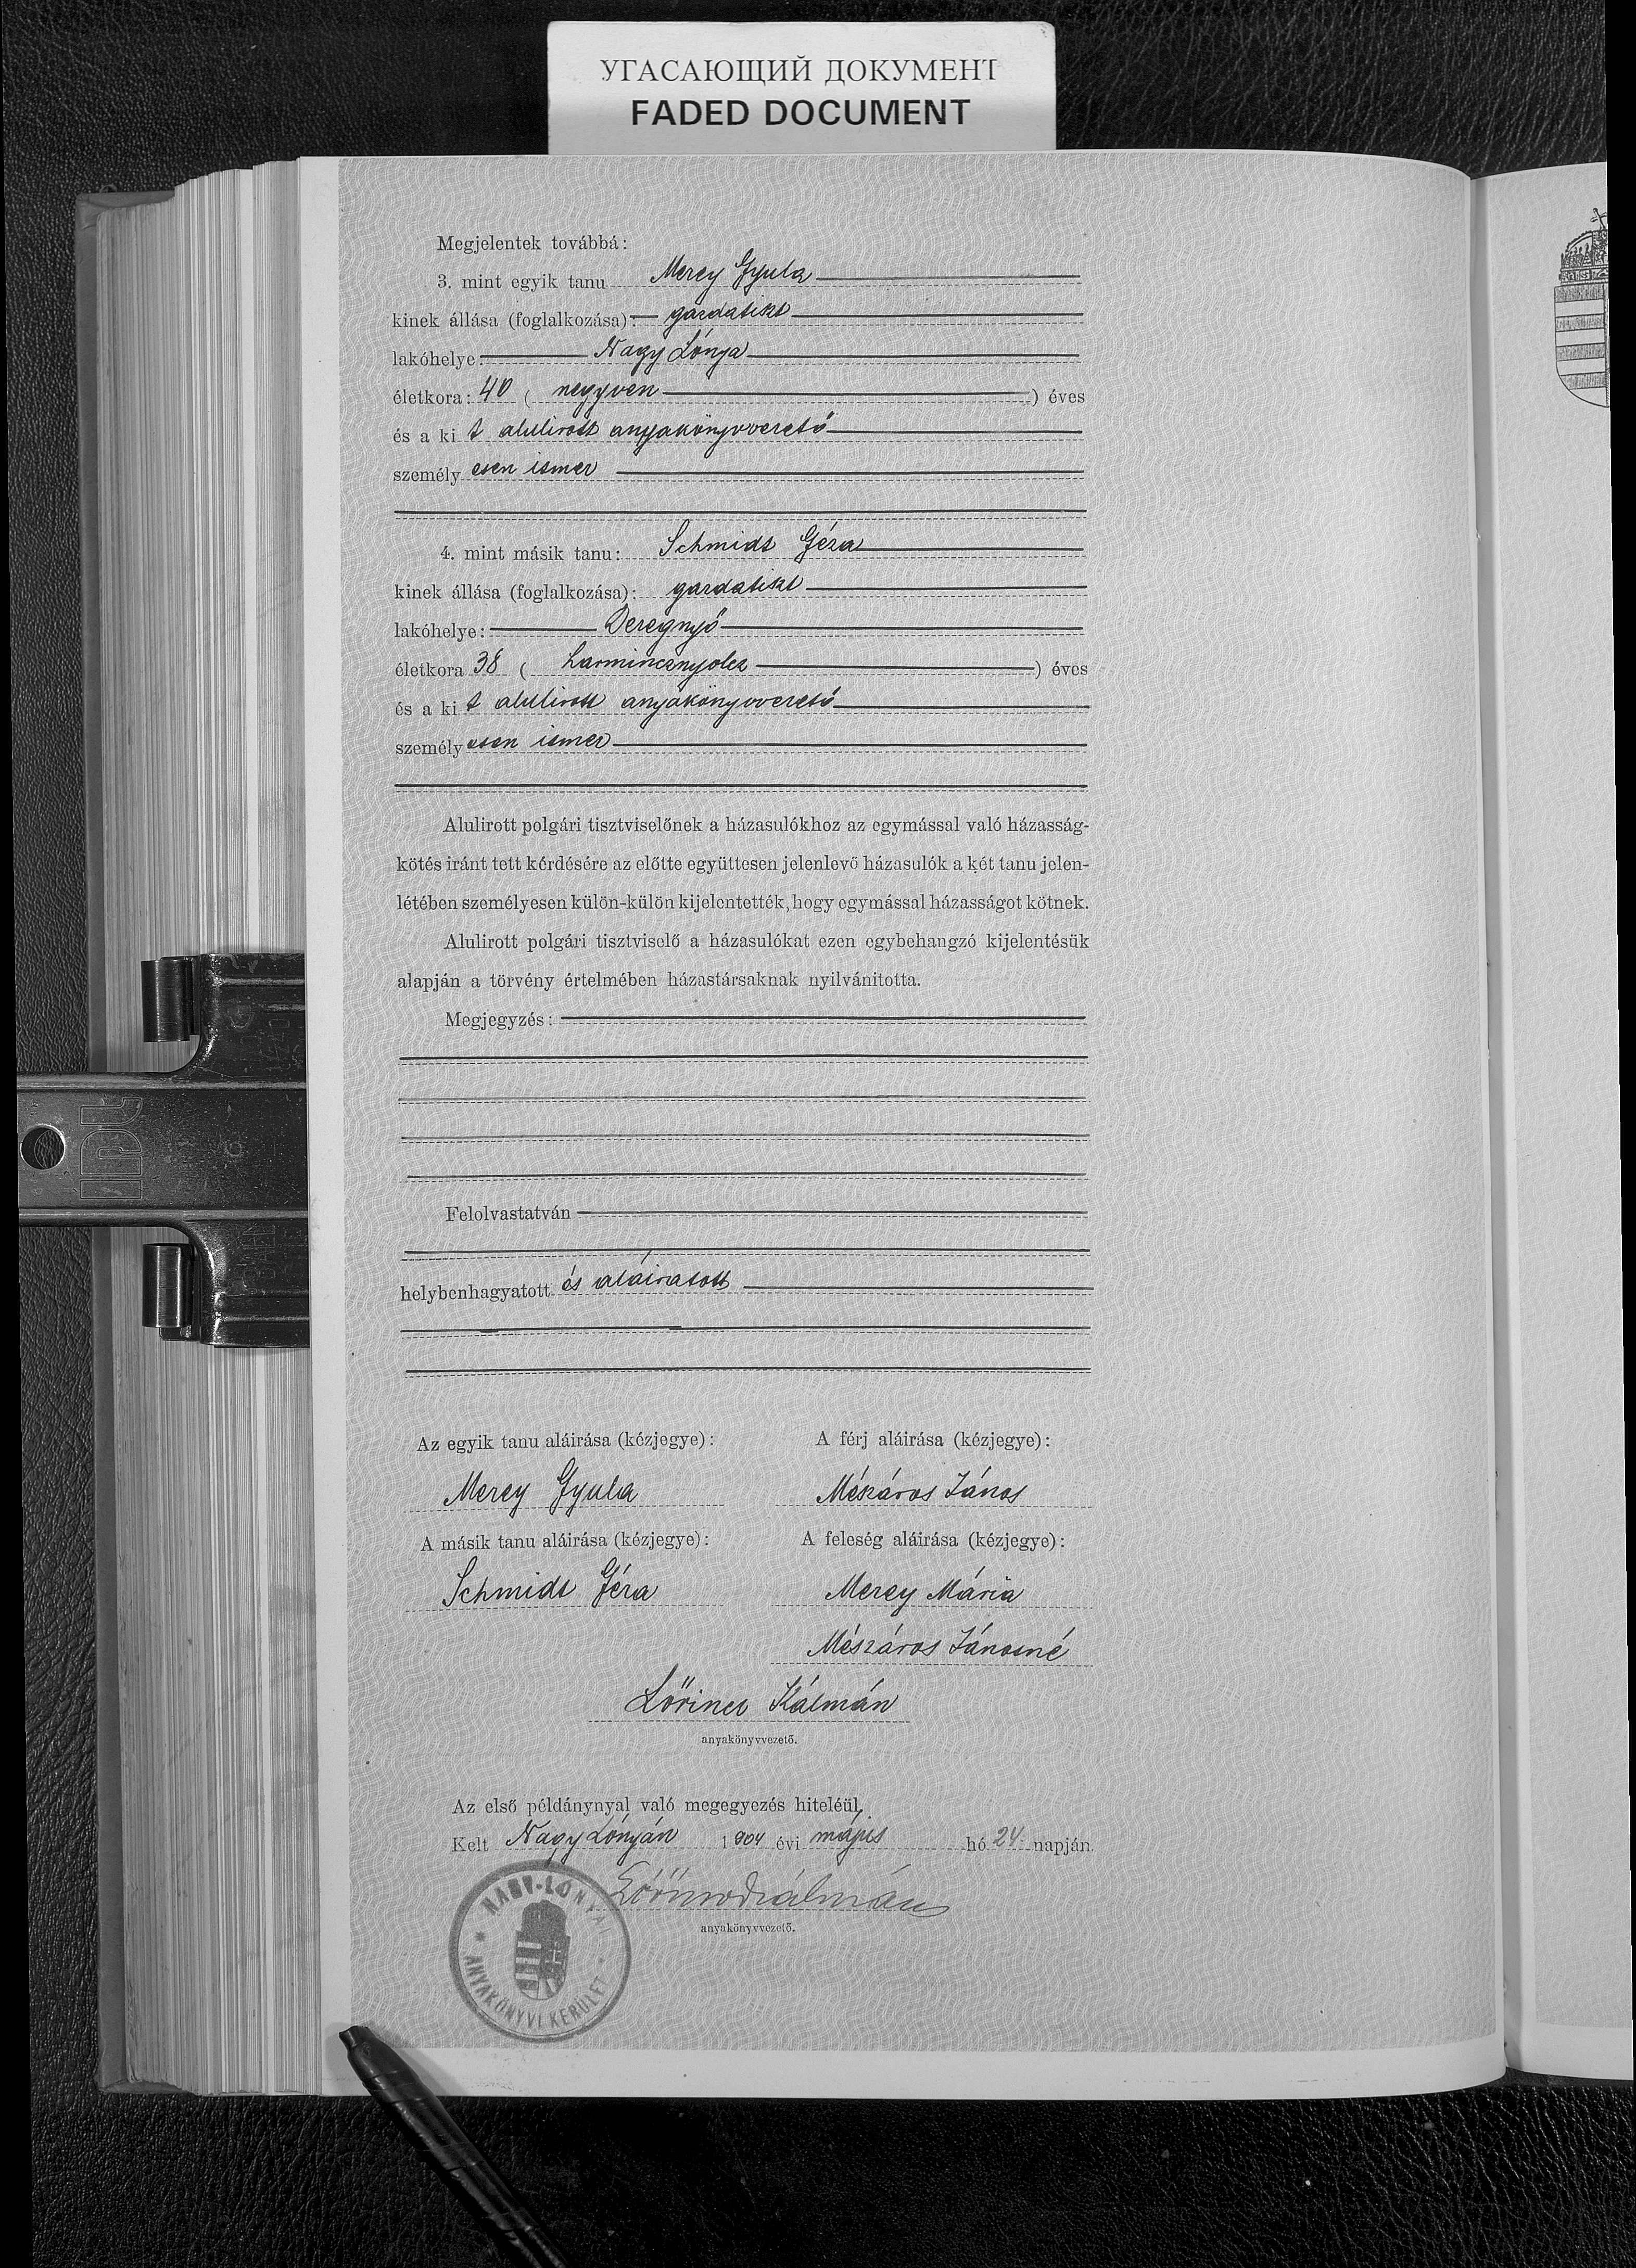 УГАСАЮЩИЙ ДОКУМЕНТ
FADED DOCUMENT
Megjelentek továbbá:
3. mint egyik tanu Merey Gyula
kinek állása (foglalkozása): gazdatiszt
lakóhelye: Nagy Lónya
életkora: 40 ( negyven ) éves
és a ki t alulirott anyakönyvvezető
személy esen ismer
4. mint másik tanu: Schmidt Géza
kinek állása (foglalkozása): gazdatiszt
lakóhelye: Deregnyő
életkora 38 ( harmincznyolcz ) éves
és a ki t alulirott anyakönyvvezető
személy esen ismer
Alulirott polgári tisztviselőnek a házasulókhoz az egymással való házasság-
kötés iránt tett kérdésére az előtte együttesen jelenlevő házasulók a két tanu jelen-
létében személyesen külön-külön kijelentették, hogy egymással házasságot kötnek.
Alulirott polgári tisztviselő a házasulókat ezen egybehangzó kijelentésük
alapján a törvény értelmében házastársaknak nyilvánitotta.
Megjegyzés:
Felolvastatván
helybenhagyatott és aláiratott
Az egyik tanu aláirása (kézjegye): A férj aláirása (kézjegye):
Merey Gyula Mészáros János
A másik tanu aláirása (kézjegye): A feleség aláirása (kézjegye):
Schmidt Géza Merey Mária
Mészáros Jánosné
Lőrincz Kálmán
anyakönyvvezető.
Az első példánynyal való megegyezés hiteléül.
Kelt Nagy Lónyán 1904 évi május hó 24 napján
Lőrincz Kálmán
anyakönyvvezető.
NAGY-LÓNYAI
ANYAKÖNYVI KERÜLET